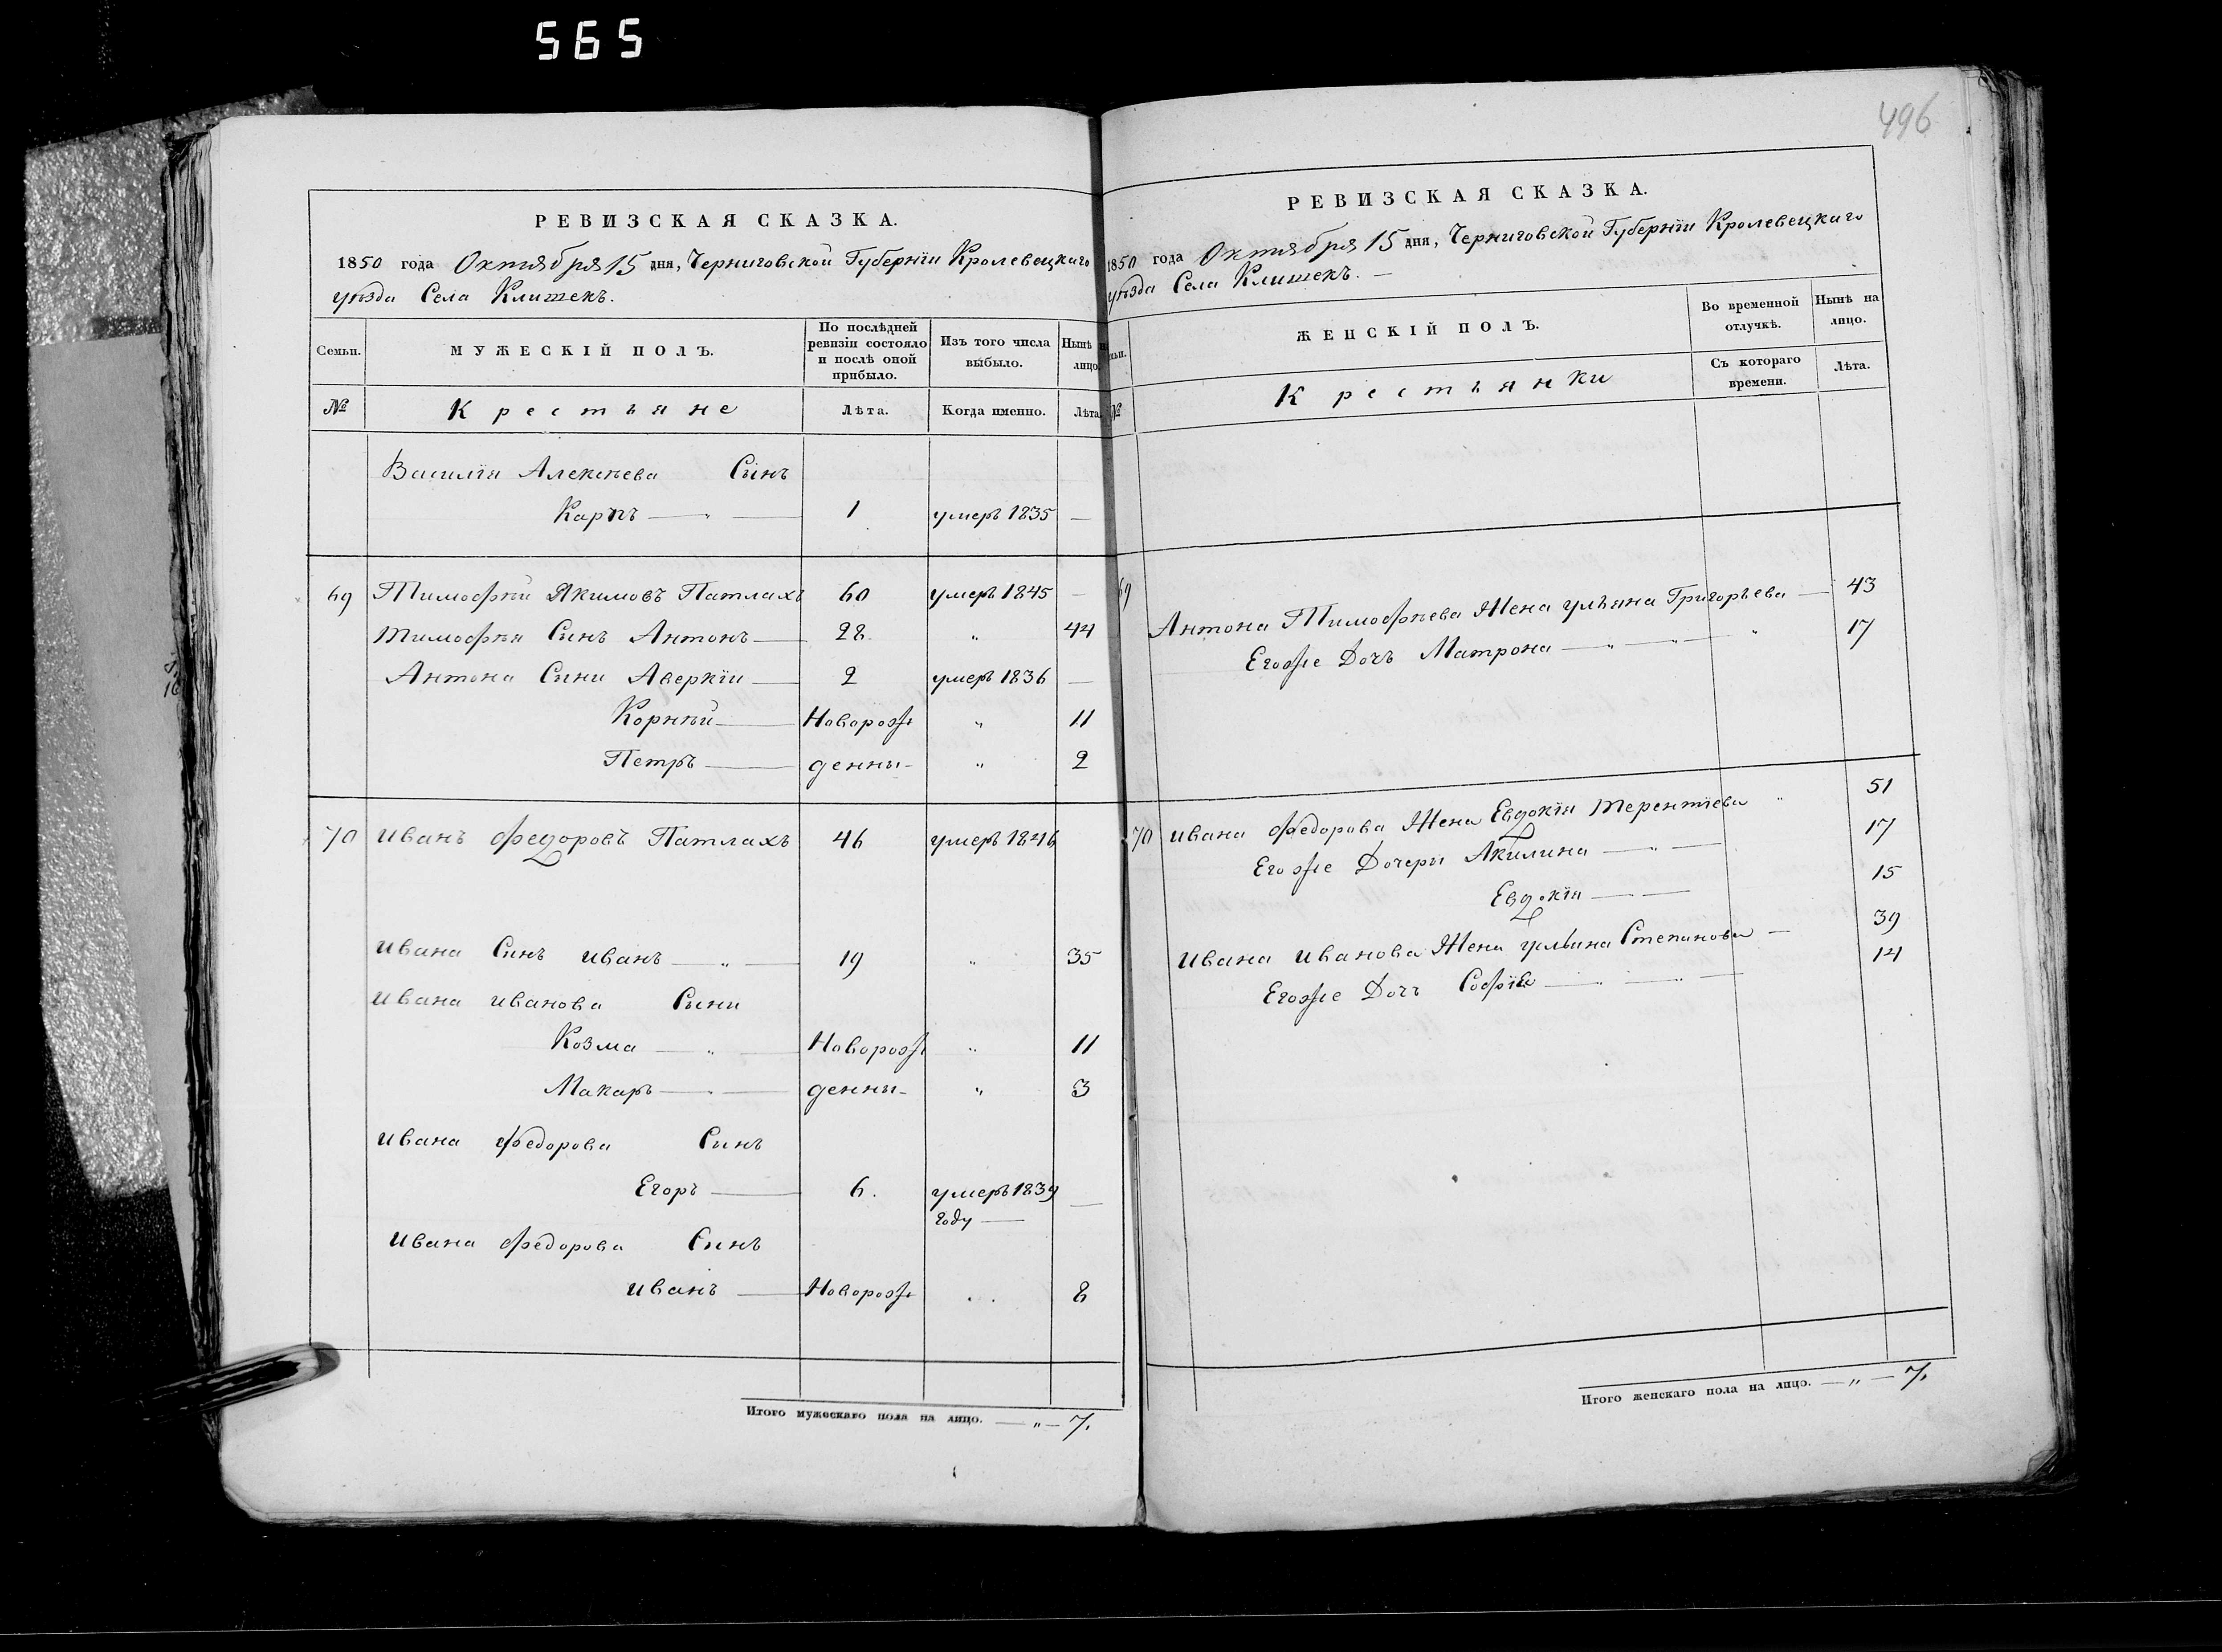 565
496
РЕВИЗСКАЯ СКАЗКА.
1850 года Октября 15 дня, Черниговской Губерніи Кролевецкаго
уѣзда Села Клишекъ.
Семьи.
МУЖЕСКІЙ ПОЛЪ.
По послѣдней ревизіи состояло и послѣ оной прибыло.
Изъ того числа выбыло.
Нынѣ на лицо.
№
Крестьяне
Лѣта.
Когда именно.
Лѣта.
Василія Алексѣева Сынъ
Карпъ — 1 умеръ 1835 —
69 Тимофѣй Якимовъ Патлахъ 60 умеръ 1845 —
Тимофѣя Сынъ Антонъ — 28 „ 44
Антона Сыни Аверкіи — 2 умеръ 1836 —
Корнѣй — Новорож „ 11
Петръ — денны- „ 2
70 Иванъ Федоровъ Патлахъ 46 умеръ 1846
Ивана Сынъ Иванъ — „ — 19 „ 35
Ивана Иванова Сыни
Козма — „ — Новорож „ 11
Макаръ — денны- „ 3
Ивана Федорова Сынъ
Егоръ — 6. умеръ 1839 —
году —
Ивана Федорова Сынъ
Иванъ — Новорож . . 8
Итого мужескаго пола на лицо. — „ — 7.
РЕВИЗСКАЯ СКАЗКА.
1850 года Октября 15 дня, Черниговской Губерніи Кролевецкаго
уѣзда Села Клишекъ. —
ЖЕНСКІЙ ПОЛЪ.
Во временной отлучкѣ.
Нынѣ на лицо.
№
Крестьянки
Съ котораго времени.
Лѣта.
69 Антона Тимофѣева Жена Ульяна Григорьева — 43
Егоже Дочъ Матрона — „ — „ — „ 17
70 Ивана Федорова Жена Евдокія Терентіева „ 51
Егоже Дочери Акилина — „ — 17
Евдокія — — 15
Ивана Иванова Жена Ульяна Степанова — 39
Егоже Дочъ Софія — „ — 14
Итого женскаго пола на лицо. — „ — 7.